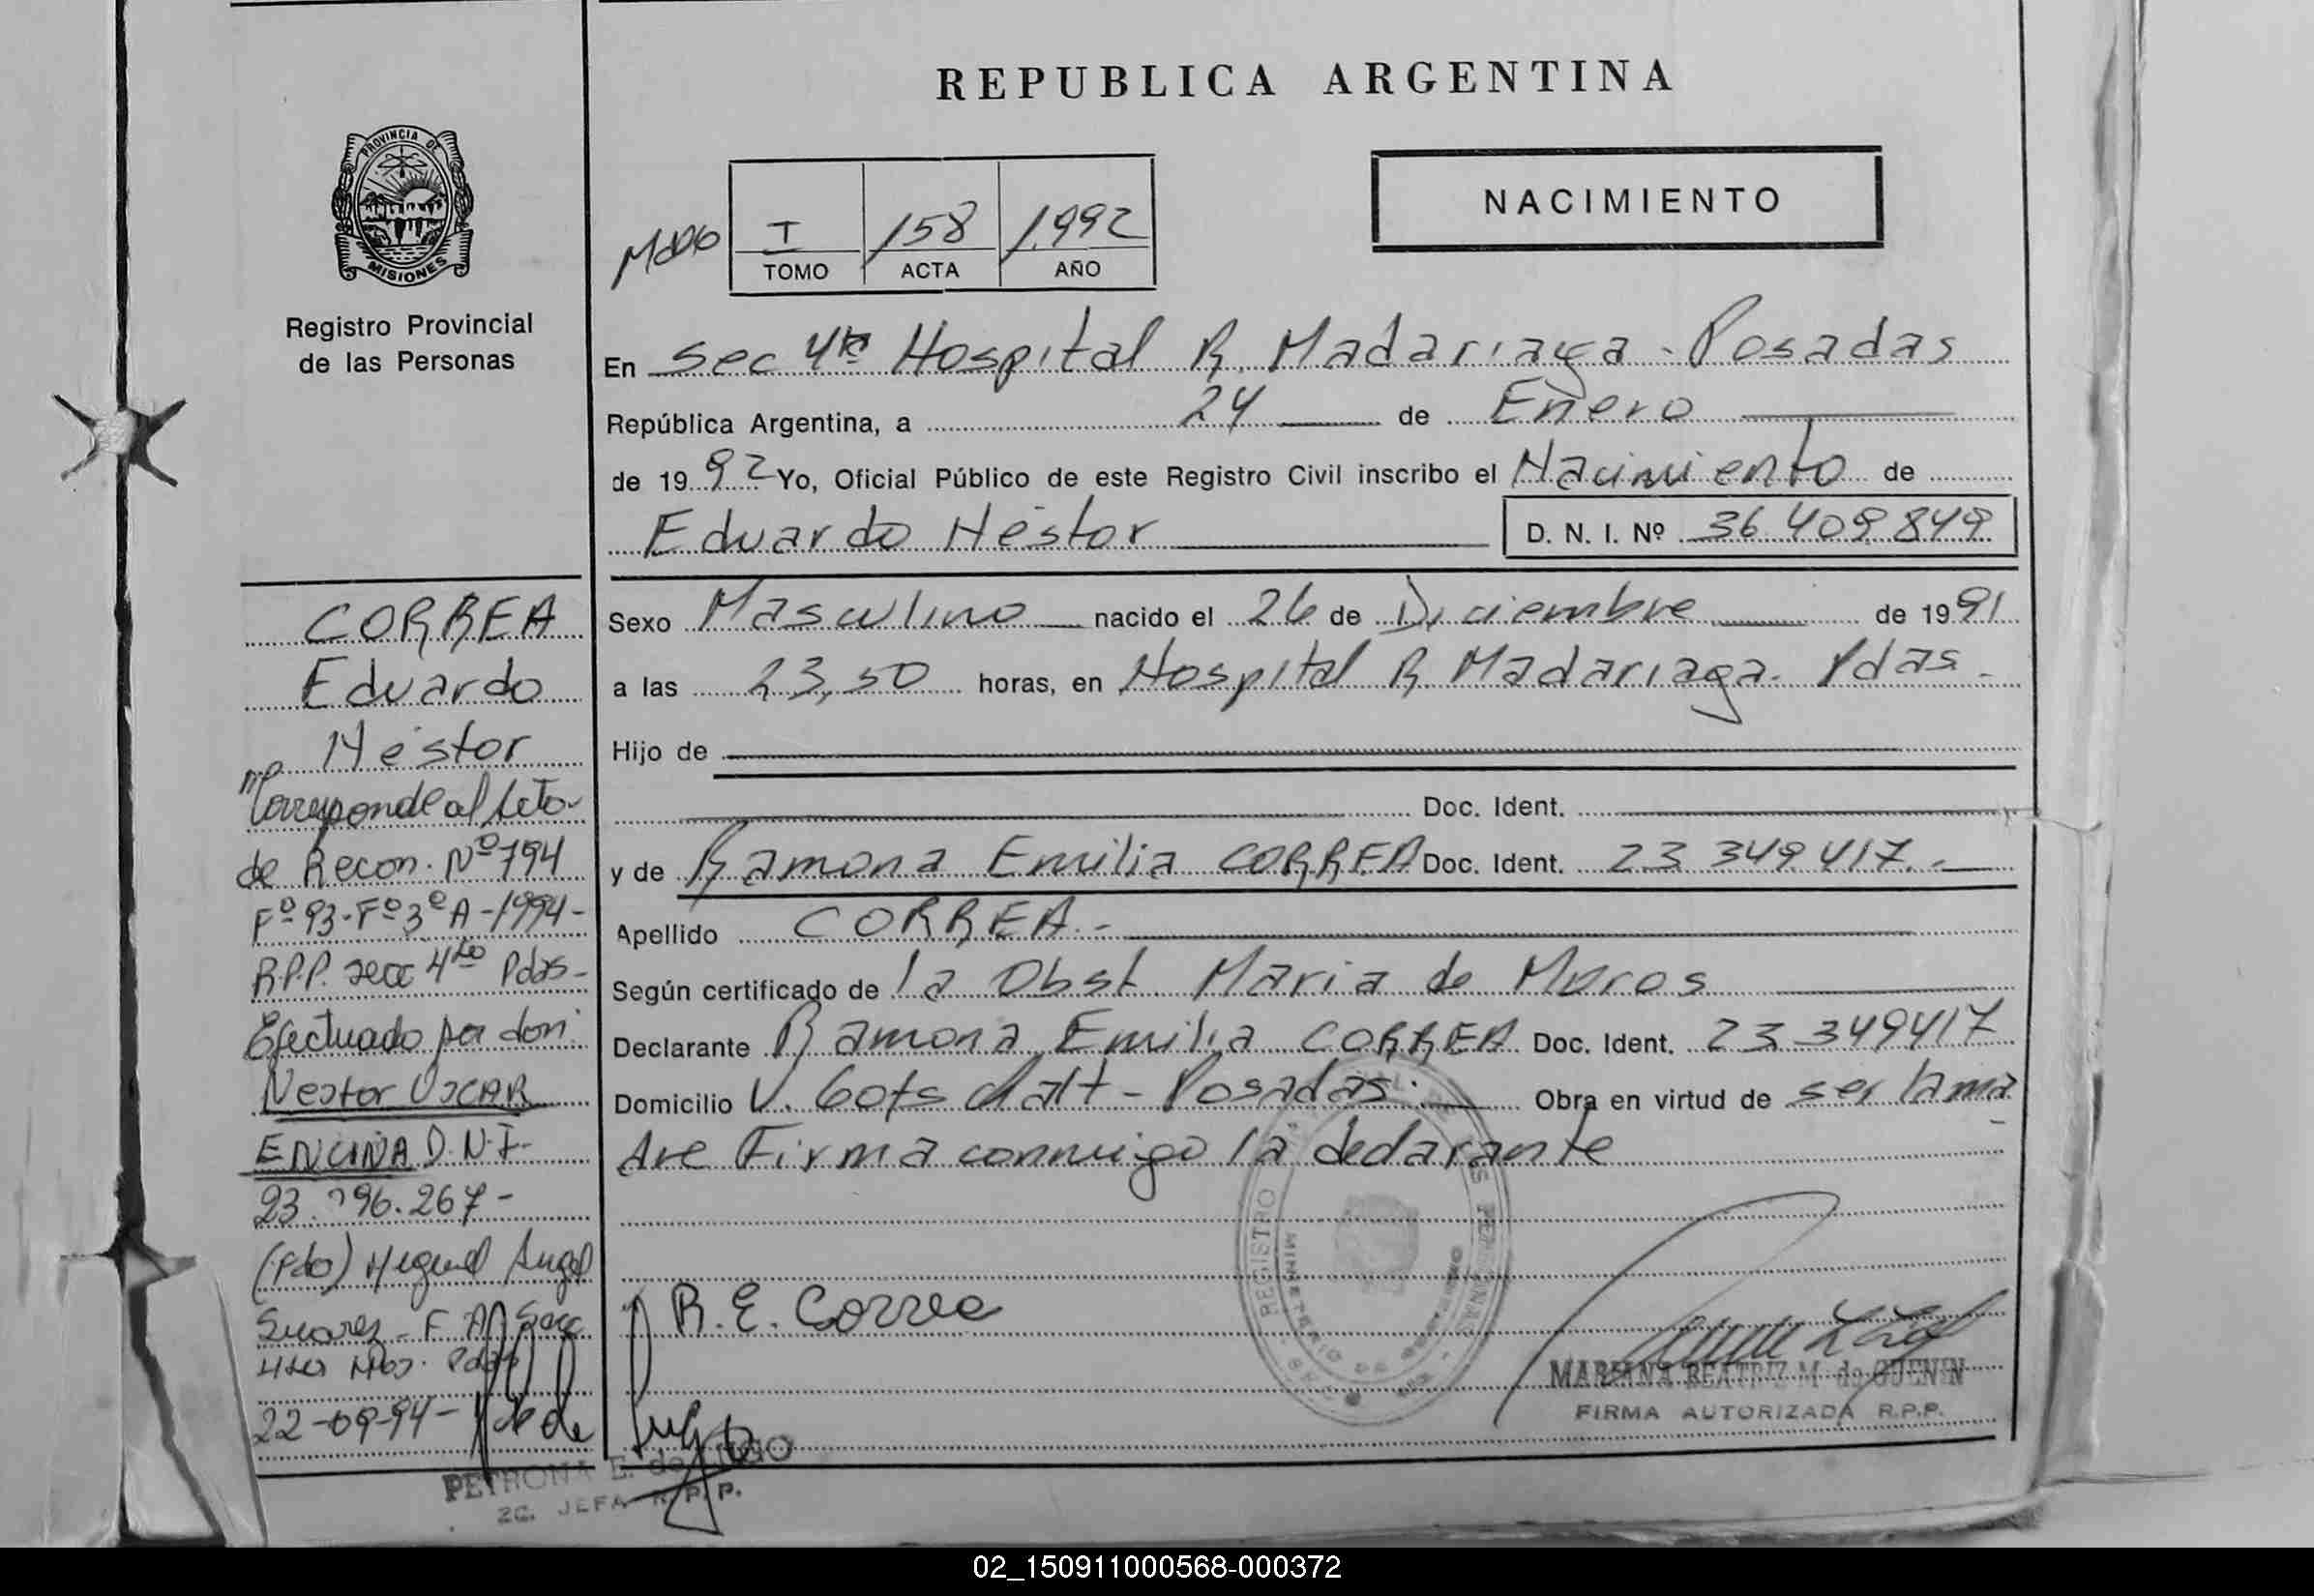 REPUBLICA ARGENTINA
PROVINCIA DE
MISIONES
Registro Provincial
de las Personas
NACIMIENTO
I 158 1992
TOMO ACTA AÑO
En Sec 4ta Hospital R. Madariaga - Posadas
República Argentina, a 24 de Enero
de 1992 Yo, Oficial Público de este Registro Civil inscribo el Nacimiento de
Eduardo Néstor D. N. I. Nº 36.409.849
Sexo Masculino nacido el 26 de Diciembre de 1991
a las 23,50 horas, en Hospital R. Madariaga. Pdas.
Hijo de
Doc. Ident.
y de Ramona Emilia CORREA Doc. Ident. 23.349.417.-
Apellido CORREA.-
Según certificado de la Obst. Maria de Moros
Declarante Ramona Emilia CORREA Doc. Ident. 23.349417
Domicilio V. Posadas. Obra en virtud de ser la ma
dre Firma conmigo la declarante
R. E. Correa
MARIANA BEATRIZ M. de GUENIN
FIRMA AUTORIZADA R.P.P.
CORREA
Eduardo
Néstor
Corresponde al Acto
de Recon. Nº 794
Fº 93-Fº 3º A-1994-
R.P.P. secc 4ta Pdas-
Efectuado por don:
Nestor OSCAR
ENCINA D.N.I.
23. 96.267-
(Fdo) Miguel Angel
Suarez - F. A. Secc
4ta Pdas
22-09-94-
PETRONA E. de LUGO
2C. JEFA R.P.P.
REGISTRO
MINISTERIO DE GOBIERNO
02_150911000568-000372